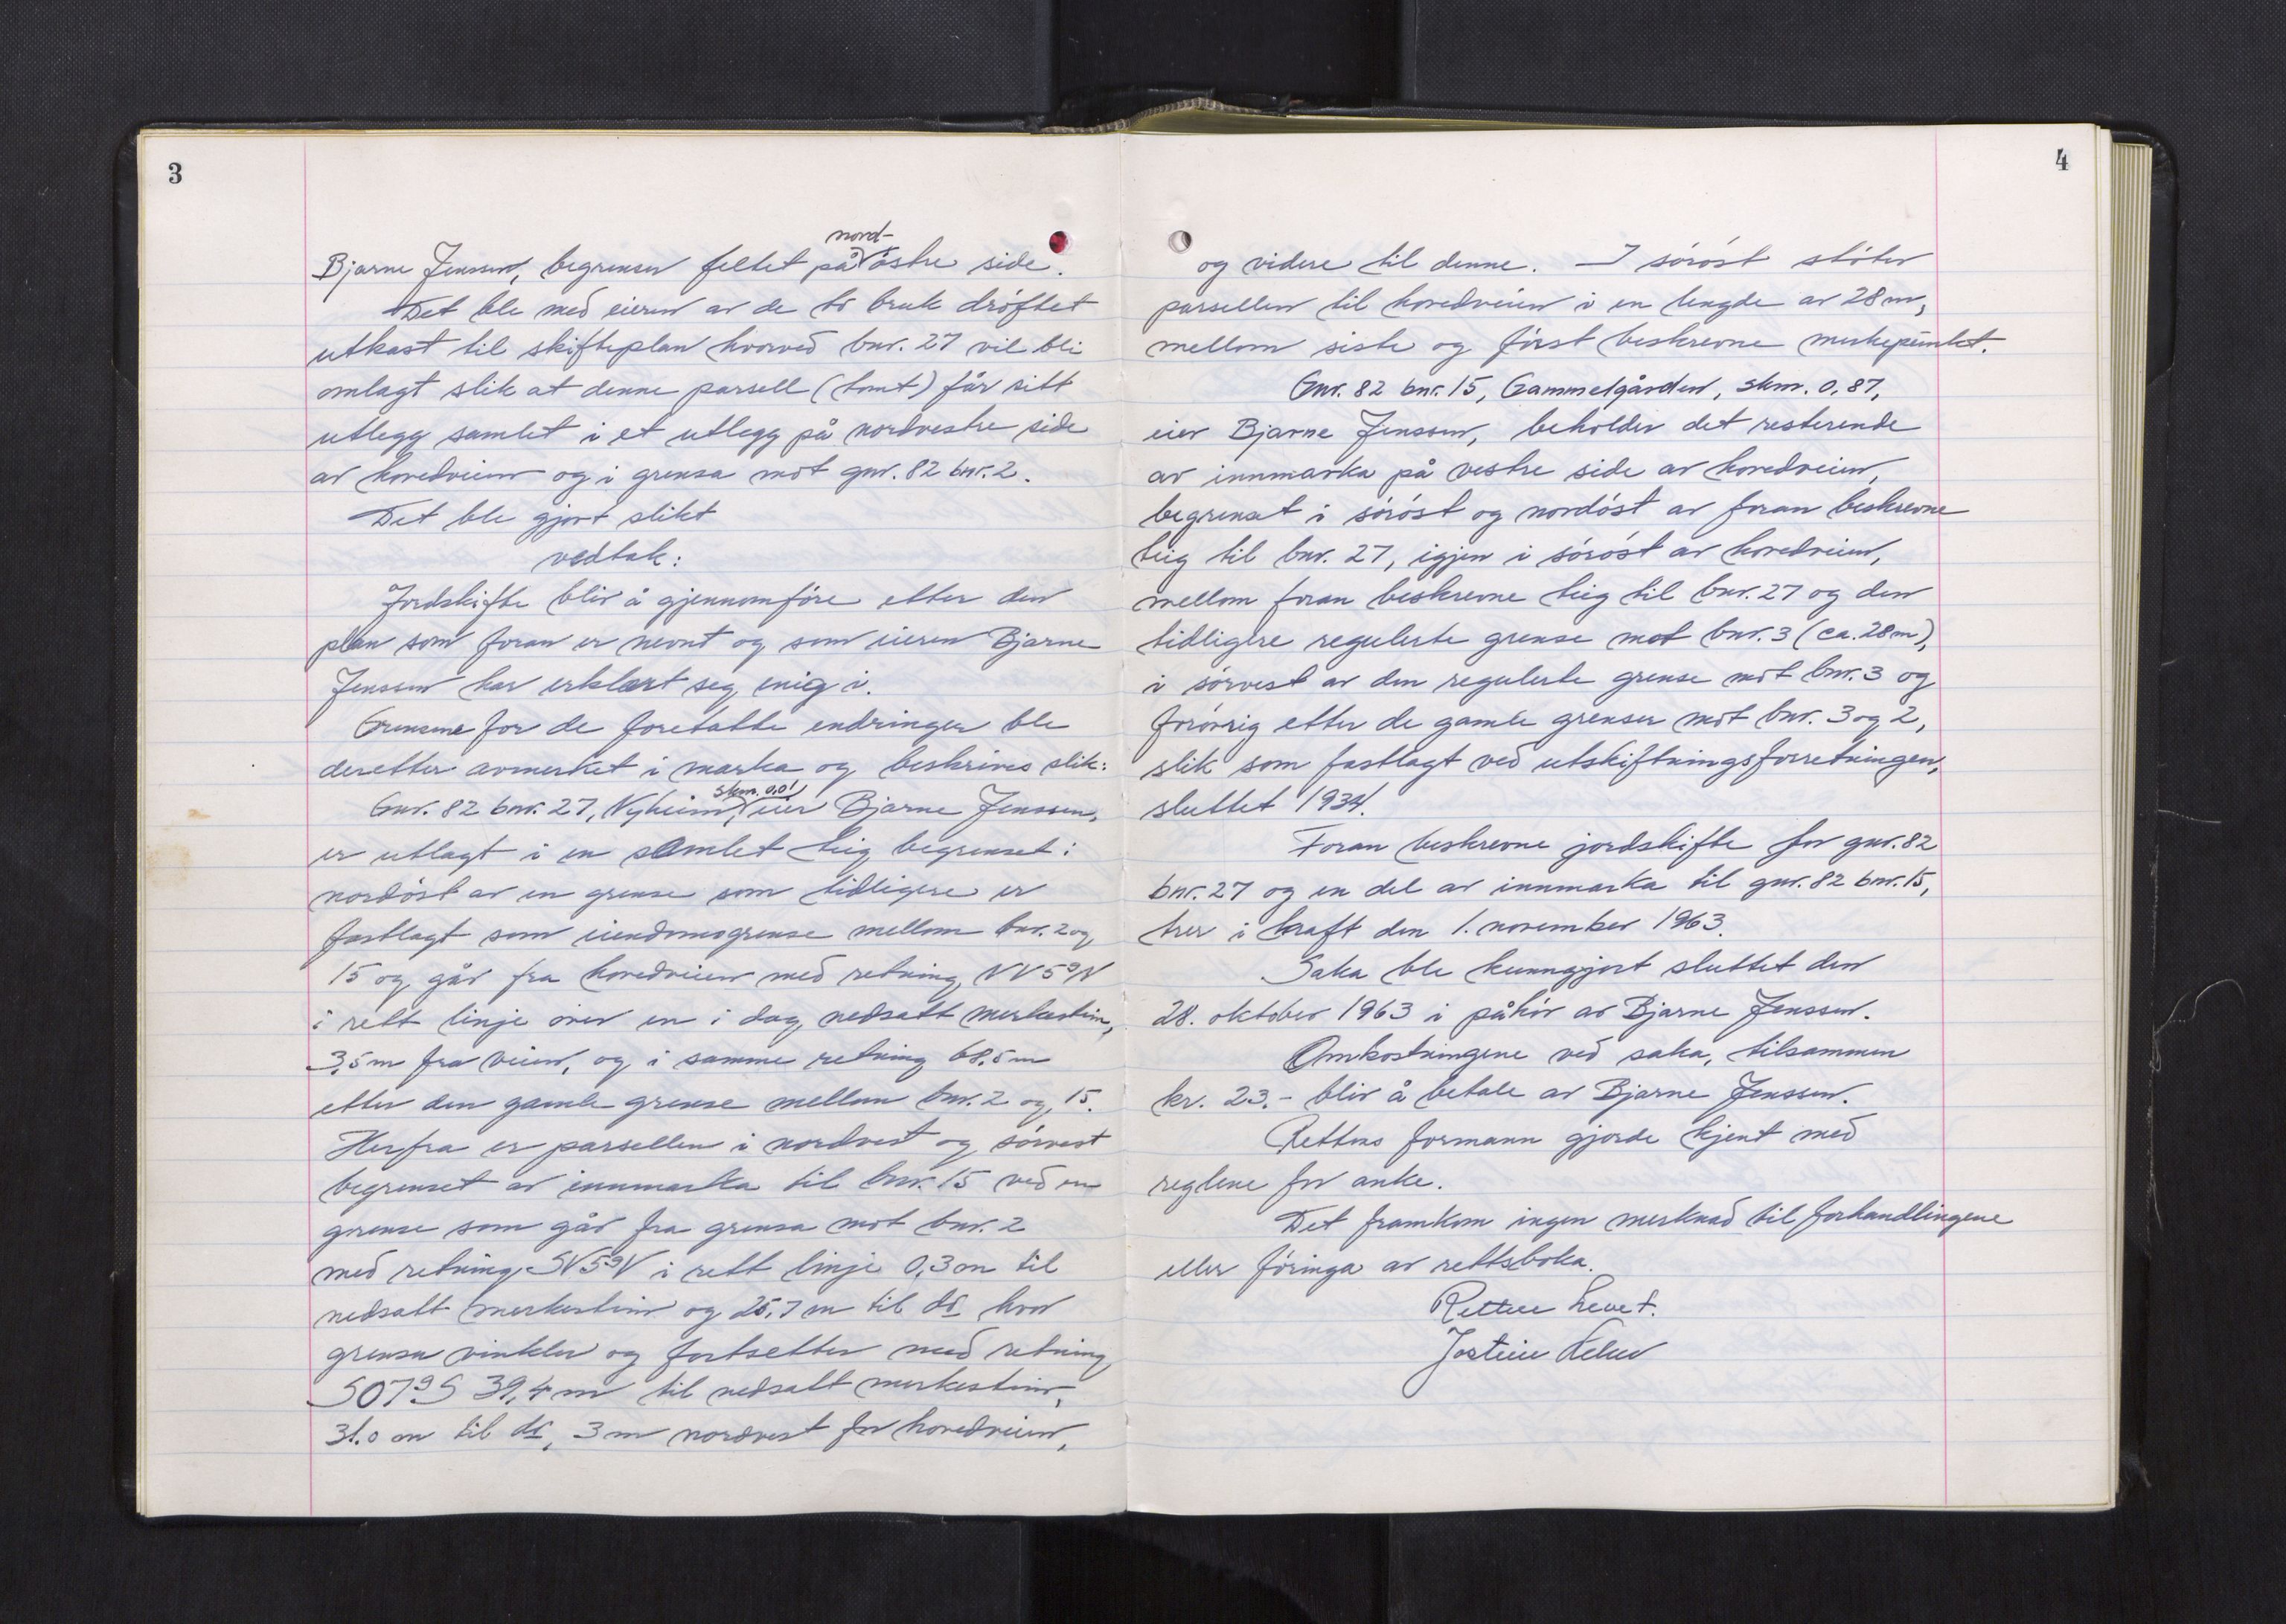 3
Bjarne Jenssen, begrenser feltet på nord-östre side.
Det ble med eieren av de to bruk dröftet
utkast til skifteplan hvorved bnr. 27 vil bli
omlagt slik at denne parsell (tomt) får sitt
utlegg samlet i et utlegg på nordvestre side
av hovedveien og i grensa mot gnr. 82 bnr. 2.
Det ble gjort slikt
vedtak:
Jordskifte blir å gjennomföre etter den
plan som foran er nevnt og som eieren Bjarne
Jenssen har erklært seg enig i.
Grensene for de foretatte endringer ble
deretter avmerket i marka og beskrives slik:
Gnr. 82 bnr. 27, Nyheim, skm. 0,01 eier Bjarne Jenssen,
er utlagt i en samlet teig begrenset:
nordöst av en grense som tidligere er
fastlagt som eiendomsgrense mellom bnr. 2 og
15 og går fra hovedveien med retning NV5°N
i rett linje over en i dag nedsatt merkestein,
3,5 m fra veien, og i samme retning 68,5 m
etter den gamle grense mellom bnr. 2 og 15.
Herfra er parsellen i nordvest og sörvest
begrenset av innmarka til bnr. 15 ved en
grense som går fra grensa mot bnr. 2
med retning SV5°V i rett linje 0,3 m til
nedsatt merkestein og 25,7 m til do hvor
grensa vinkler og fortsetter med retning
SO7°S 39,4 m til nedsatt merkestein,
31.0 m til do, 3 m nordvest for hovedveien,
4
og videre til denne. I söröst stöter
parsellen til hovedveien i en lengde av 28 m,
mellom siste og först beskrevne merkepunkt.
Gnr. 82 bnr. 15, Gammelgården, skm. 0,87,
eier Bjarne Jenssen, beholder det resterende
av innmarka på vestre side av hovedveien,
begrenset i söröst og nordöst av foran beskrevne
teig til bnr. 27, igjen i söröst av hovedveien,
mellom foran beskrevne teig til bnr. 27 og den
tidligere regulerte grense mot bnr. 3 (ca. 28 m),
i sörvest av den regulerte grense mot bnr. 3 og
forövrig etter de gamle grenser mot bnr. 3 og 2,
slik som fastlagt ved utskiftningsforretningen,
sluttet 1934.
Foran beskrevne jordskifte for gnr. 82
bnr. 27 og en del av innmarka til gnr. 82 bnr. 15,
trer i kraft den 1. november 1963.
Saka ble kunngjort sluttet den
28. oktober 1963 i påhör av Bjarne Jenssen.
Omkostningene ved saka, tilsammen
kr. 23.- blir å betale av Bjarne Jenssen.
Rettens formann gjorde kjent med
reglene for anke.
Det framkom ingen merknad til forhandlingene
eller föringa av rettsboka.
Retten hevet.
Jostein